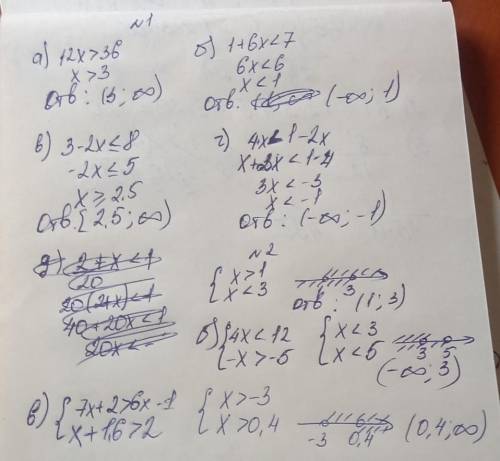 №1
а) 12x>36
x>3
Отв: (3; ∞)
б) 1+6x<7
6x<6
x<1
Отв. (-∞; 1)
в) 3-2x≤8
-2x≤5
x≥2,5
Отв. [2,5; ∞)
г) 4x<1-2x
x+2x<1-4
3x<-3
x<-1
Отв: (-∞; -1)
д) 2+x<1
20
20(2+x)<1
40+20x<1
20x<-
№2
{ x>1
x<3
3
Отв: (1; 3)
б) { 4x<12
-x>-5
{ x<3
x<5
3 5
(-∞; 3)
в) { 7x+2>6x-1
x+1,6>2
{ x>-3
x>0,4
-3 0,4
(0,4; ∞)